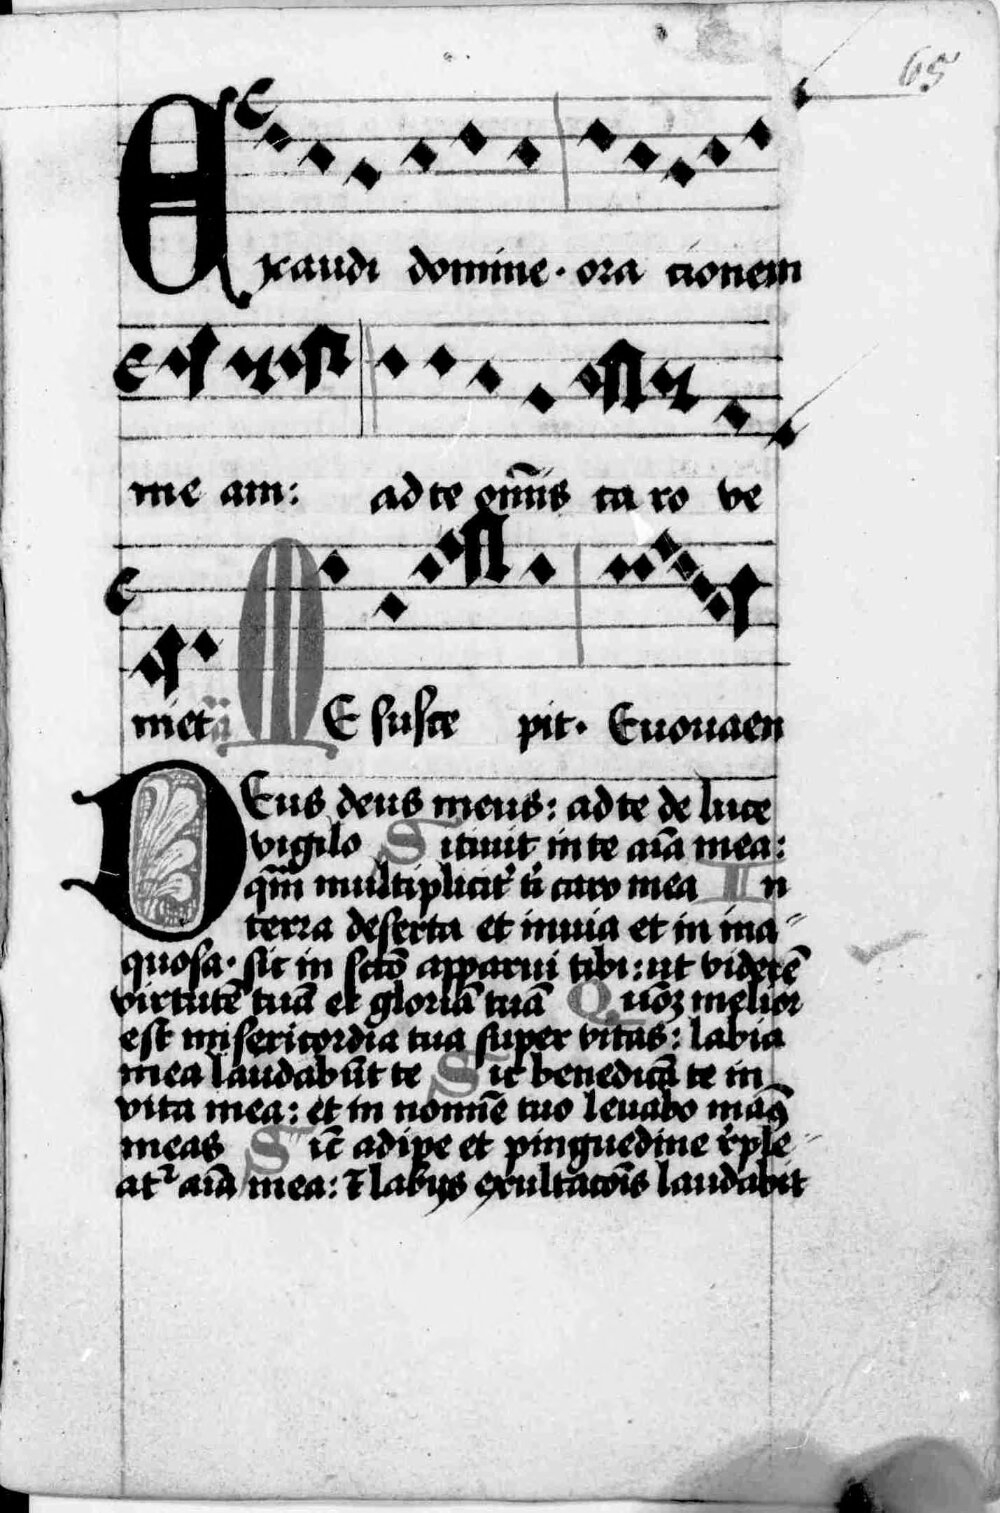 65
Exaudi domine · ora cionem
me am: ad te om̄is ca ro ve
niet ā ME susce pit · Euouaen
DEus deus meus: ad te de luce
vigilo Sitiuit in te aīa mea:
qm̄ multiplicit᷑ t̄ caro mea In
terra deserta et inuia et in ina-
quosa · sic in sctō apparui tibi: ut viderē
virtutē tuā et gloriā tuā Quōꝫ melior
est misericordia tua super vitas: labia
mea laudabūt te Sic benedicā te in
vita mea: et in nomīe tuo leuabo manꝰ
meas Sic̄ adipe et pinguedine r̄ple-
at᷑ aīa mea: ⁊ labijs exultacōis laudabit